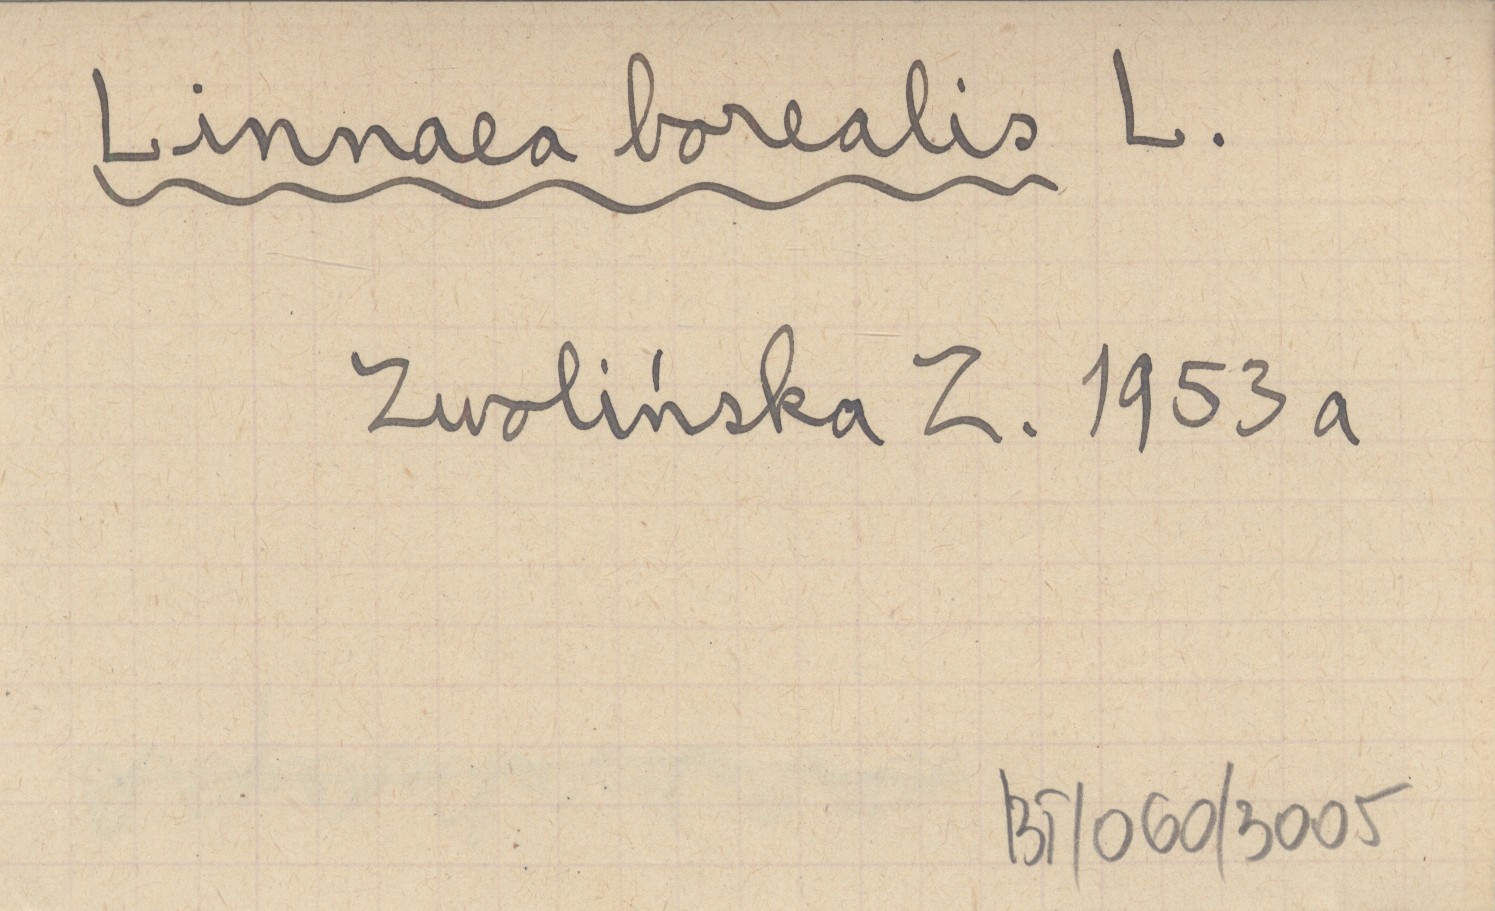 Linnaea borealis L.
Zwolińska Z. 1953 a
BT/060/3005